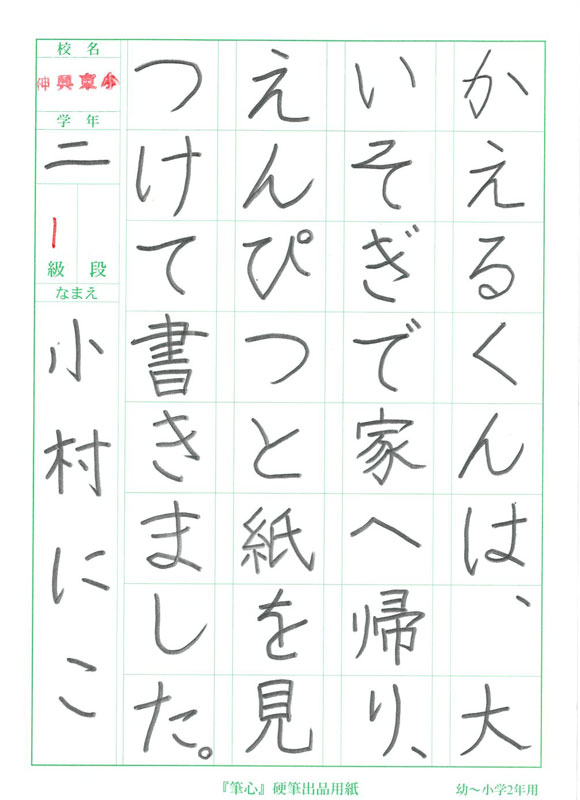 かえるくんは、大
いそぎで家へ帰り、
えんぴつと紙を見
つけて書きました。
校名
学年
二
級 段
一
なまえ
小村にこ
『筆心』硬筆出品用紙
幼～小学2年用